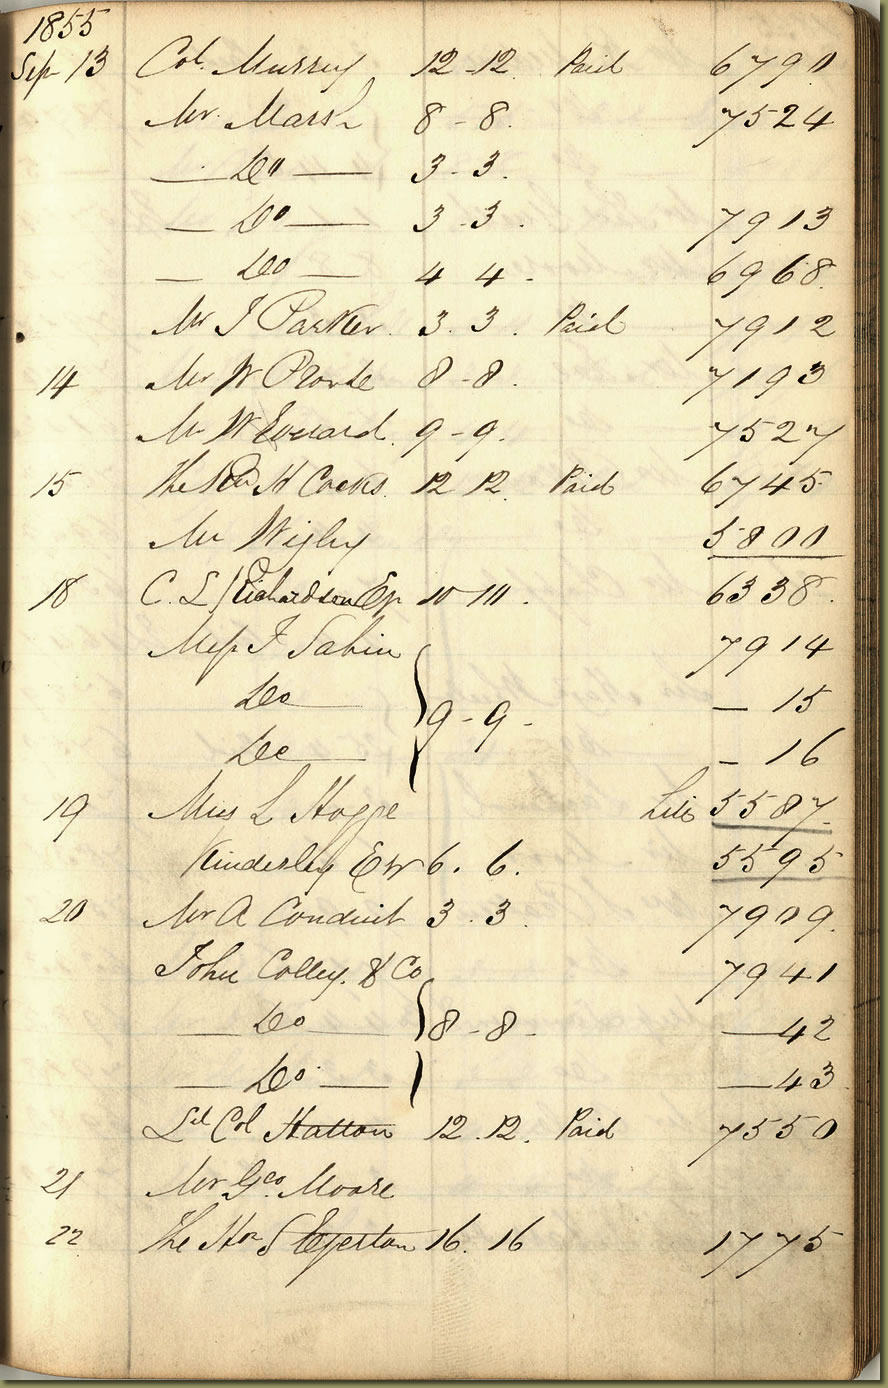 1855
Sep 13 Col. Murray 12-12. Paid 6790
Mr. Marsh 8-8. 7524
— Do — 3-3.
— Do — 3-3. 7913
— Do — 4 4 - 6968.
Mr J Parker. 3.3. Paid 7912
14 Mr W 8-8. 7193
Mr W 9-9. 7527
15 The H Cocks. 12 12. Paid 6745
Mr Wigley 5800
18 C. L Richardson 10-10. 6338.
Miss F Sabin 7914
Do 9-9- — 15
Do — 16
19 Miss L Hogge 5587
Kinderley E W 6. 6. 5595
20 Mr A Conduit 3.3. 7909.
John Colley & Co 7941
— Do 8-8- —42
— Do — —43
Lt Col Hatton 12.12. Paid 7550
21 Mr Geo. Moore
22 The Hon S Egerton 16. 16 1775